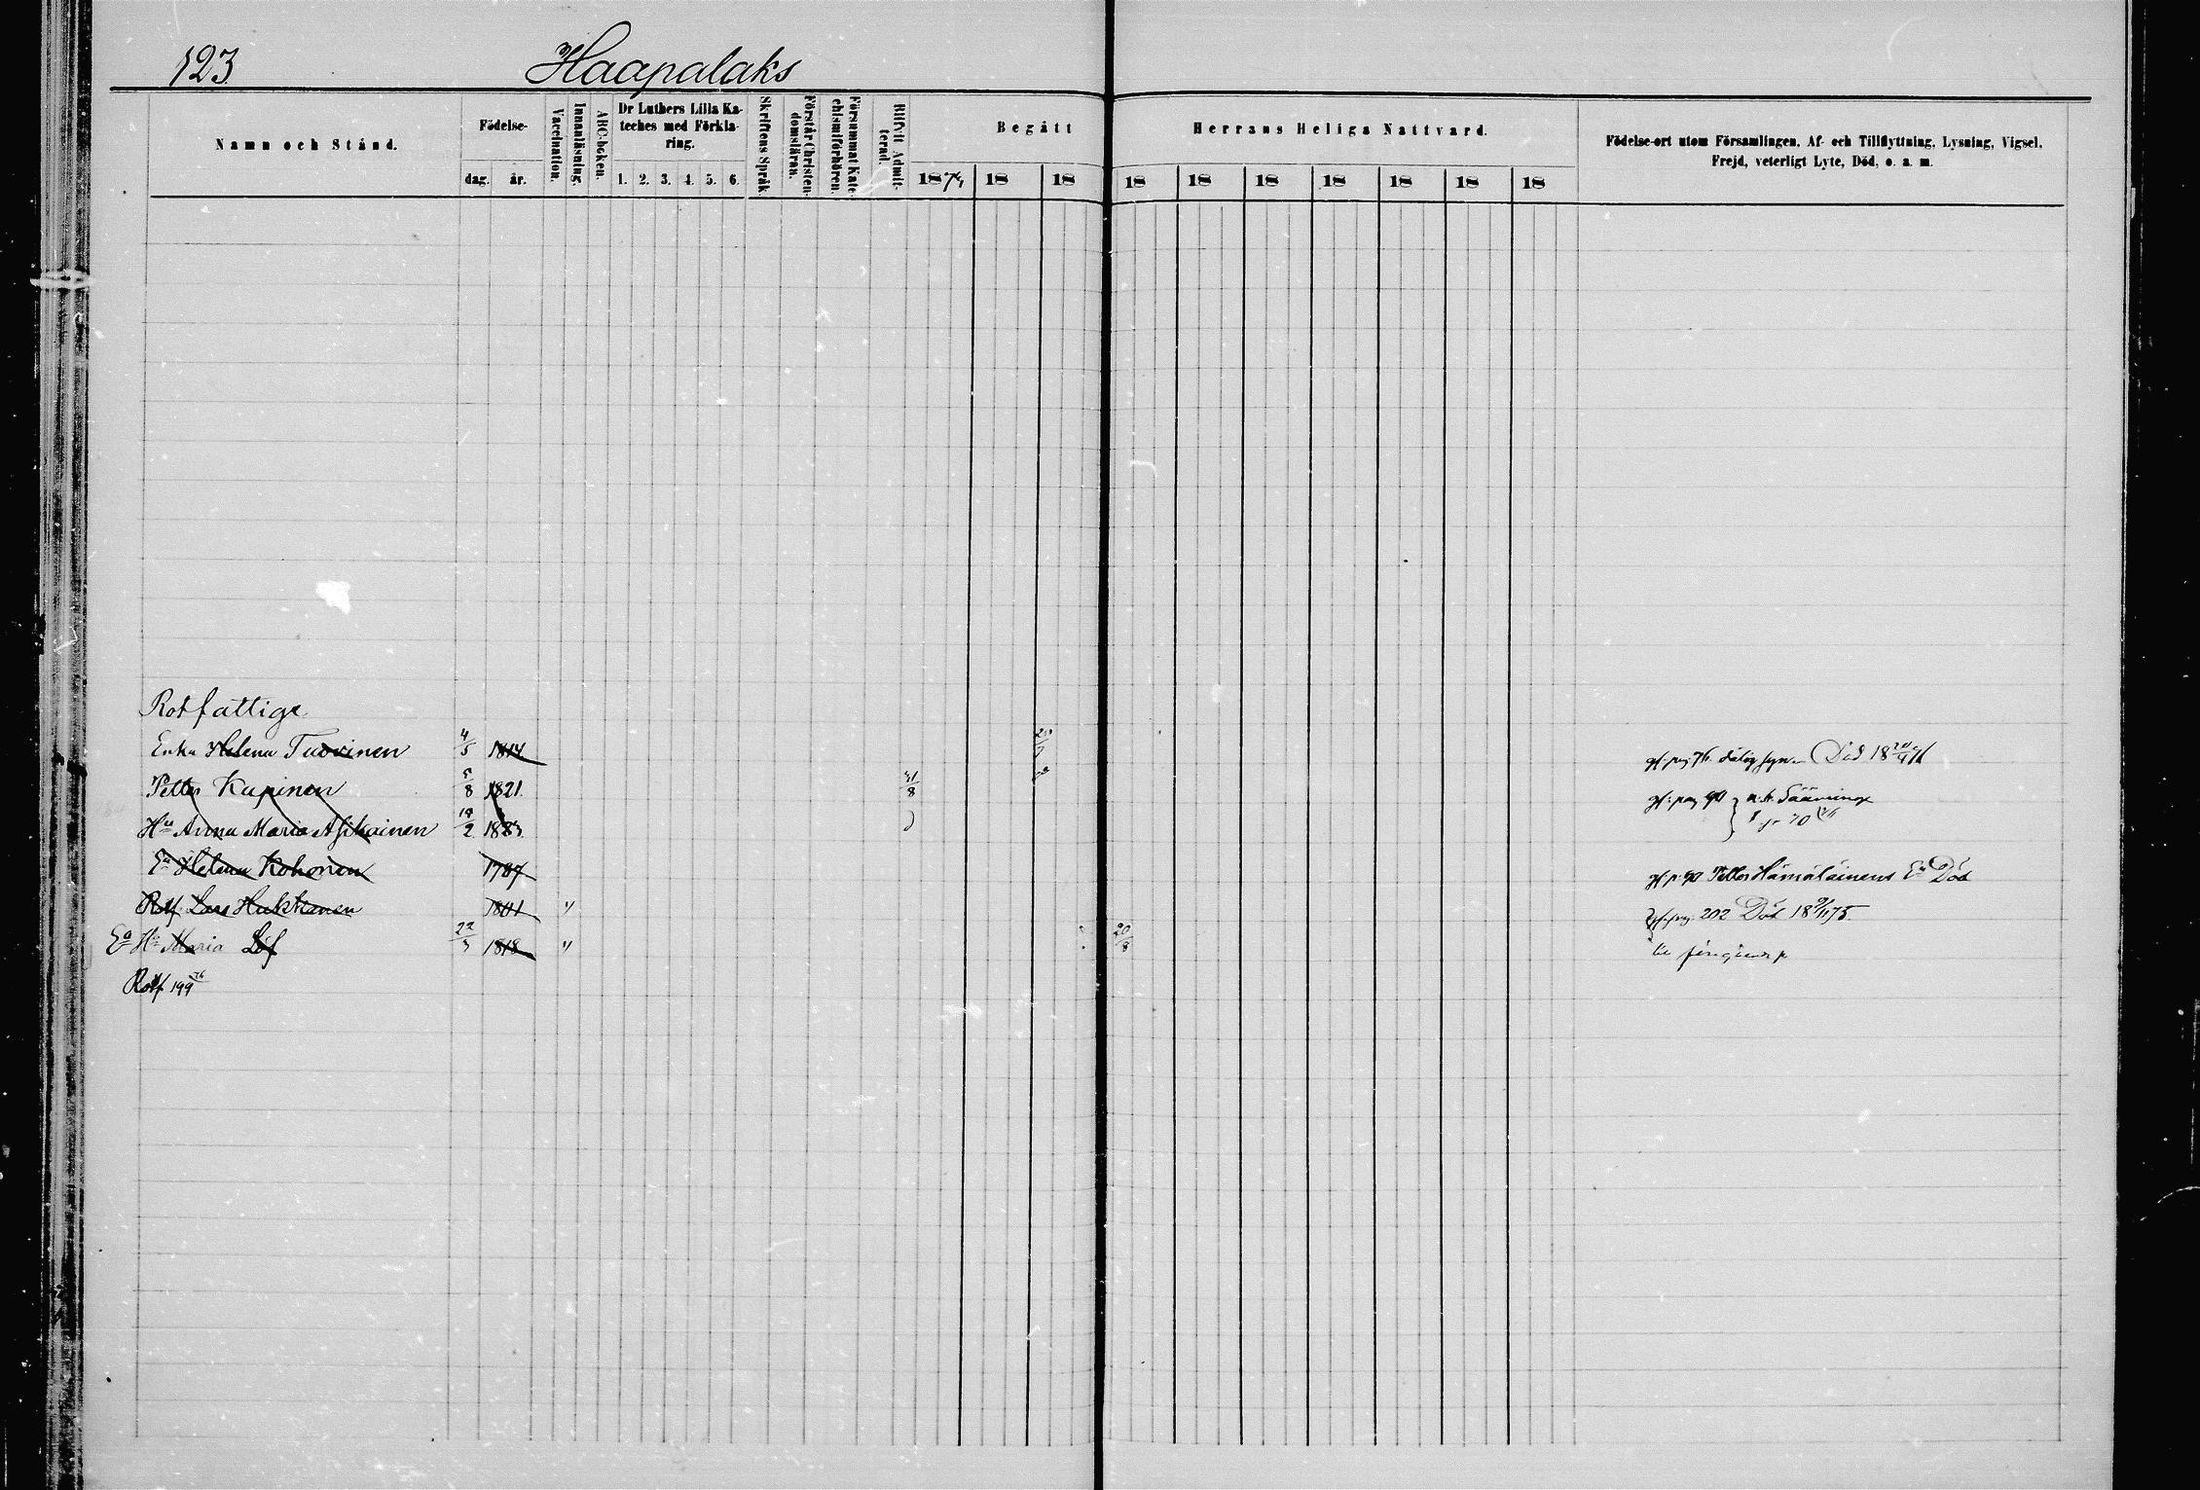 123. Haapalaks
Namn och Stånd.
Födelse-
dag. år.
Vaccination.
Innanläsning.
ABC-boken.
Dr Luthers Lilla Ka-
teches med Förkla-
ring.
1. 2. 3. 4. 5. 6.
Skriftens Språk.
Förstår Christen-
domsläran.
Försummat Kate-
chismiförhören.
Blifvit Admit-
terad.
Begått Herrans Heliga Nattvard.
1874 18 18 18 18 18 18 18 18 18
Födelse-ort utom Församlingen, Af- och Tillflyttning, Lysning, Vigsel,
Frejd, veterligt Lyte, Död, o. a. m.
Rotfattige
Enka Helena Tuovinen 4/5 1814 Död
Petter Kapinen 5/8 1821. 31/8
Hu Anna Maria Asikainen 19/2
En Helena Kohonen 1787 Petter Hämäläinens En Död
Rotf Lars Hukkanen 1801 " 202 Död
Ea Hu Maria Löf 22/3 1818 " 20/8
Rotf 199 76